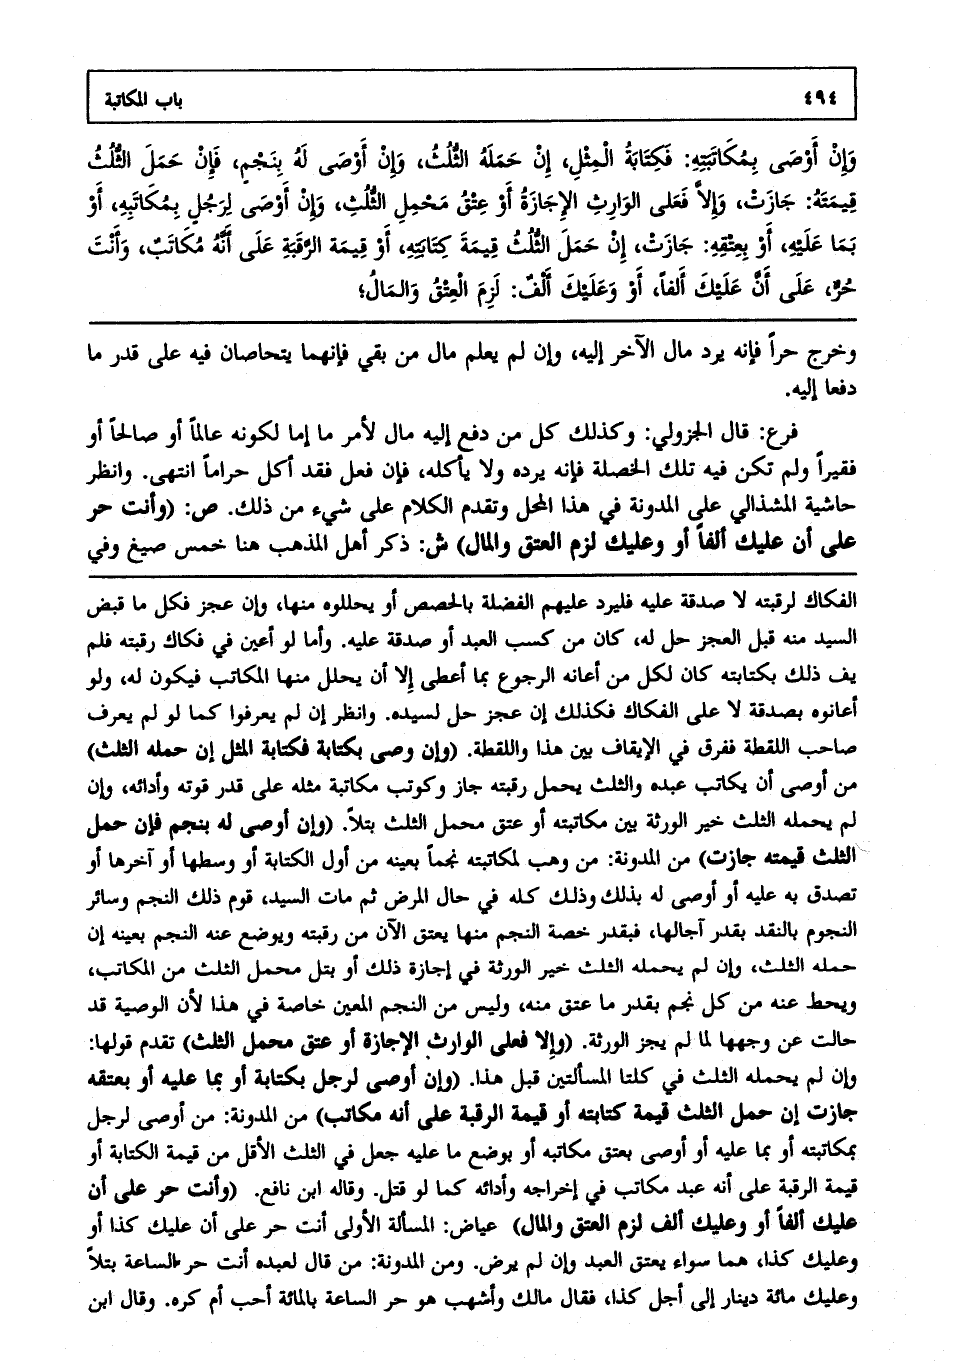 ٤٩٤
باب المكاتبة
وَإِنْ أَوْصَى بِمُكَاتَبَتِهِ: فَكِتَابَةُ الْمِثْلِ، إِنْ حَمَلَهُ الثُّلُثُ، وَإِنْ أَوْصَى لَهُ بِنَجْمٍ، فَإِنْ حَمَلَ الثُّلُثُ
قِيمَتَهُ: جَازَتْ، وَإِلاَّ فَعَلى الوَارِثِ الإِجَازَةُ أَوْ عِتْقُ مَحْمِلِ الثُّلثِ، وَإِنْ أَوْصَى لِرَجُلٍ بِمُكَاتَبِهِ، أَوْ
بَمَا عَلَيْهِ، أَوْ بِعِتْقِهِ: جَازَتْ، إِنْ حَمَلَ الثُّلُثُ قِيمَةَ كِتَابَتِهِ، أَوْ قِيمَة الرَّقَبَةِ عَلَى أَنَّهُ مُكَاتَبٌ، وَأَنْتَ
حُرٌّ، عَلَى أَنَّ عَلَيْكَ أَلفاً، أَوْ وَعَلَيْكَ أَلْفٌ: لَزِمَ الْعِتْقُ وَالمَالُ؛
وخرج حراً فإنه يرد مال الآخر إليه، وإن لم يعلم مال من بقي فإنهما يتحاصان فيه على قدر ما
دفعا إليه.
فرع: قال الجزولي: وكذلك كل من دفع إليه مال لأمر ما إما لكونه عالماً أو صالحاً أو
فقيراً ولم تكن فيه تلك الخصلة فإنه يرده ولا يأكله، فإن فعل فقد أكل حراماً انتهى. وانظر
حاشية المشذالي على المدونة في هذا المحل وتقدم الكلام على شيء من ذلك. ص: (وأنت حر
على أن عليك ألفاً أو وعليك لزم العتق والمال) ش: ذكر أهل المذهب هنا خمس صيغ وفي
الفكاك لرقبته لا صدقة عليه فليرد عليهم الفضلة بالحصص أو يحللوه منها، وإن عجز فكل ما قبض
السيد منه قبل العجز حل له، كان من كسب العبد أو صدقة عليه. وأما لو أعين في فكاك رقبته فلم
يف ذلك بكتابته كان لكل من أعانه الرجوع بما أعطى إلا أن يحلل منها المكاتب فيكون له، ولو
أعانوه بصدقة لا على الفكاك فكذلك إن عجز حل لسيده. وانظر إن لم يعرفوا كما لو لم يعرف
صاحب اللقطة ففرق في الإيقاف بين هذا واللقطة. (وإن وصى بكتابة فكتابة المثل إن حمله الثلث)
من أوصى أن يكاتب عبده والثلث يحمل رقبته جاز وكوتب مكاتبة مثله على قدر قوته وأدائه، وإن
لم يحمله الثلث خير الورثة بين مكاتبته أو عتق محمل الثلث بتلاً. (وإن أوصى له بنجم فإن حمل
الثلث قيمته جازت) من المدونة: من وهب لمكاتبته نجماً بعينه من أول الكتابة أو وسطها أو آخرها أو
تصدق به عليه أو أوصى له بذلك وذلك كله في حال المرض ثم مات السيد، قوم ذلك النجم وسائر
النجوم بالنقد بقدر آجالها، فبقدر خصة النجم منها يعتق الآن من رقبته ويوضع عنه النجم بعينه إن
حمله الثلث، وإن لم يحمله الثلث خير الورثة في إجازة ذلك أو بتل محمل الثلث من المكاتب،
ويحط عنه من كل نجم بقدر ما عتق منه، وليس من النجم المعين خاصة في هذا لأن الوصية قد
حالت عن وجهها لما لم يجز الورثة. (وإلا فعلى الوارث الإجازة أو عتق محمل الثلث) تقدم قولها:
وإن لم يحمله الثلث في كلتا المسألتين قبل هذا. (وإن أوصى لرجل بكتابة أو بما عليه أو بعتقه
جازت إن حمل الثلث قيمة كتابته أو قيمة الرقبة على أنه مكاتب) من المدونة: من أوصى لرجل
بمكاتبته أو بما عليه أو أوصى بعتق مكاتبه أو بوضع ما عليه جعل في الثلث الأقل من قيمة الكتابة أو
قيمة الرقبة على أنه عبد مكاتب في إخراجه وأدائه كما لو قتل. وقاله ابن نافع. (وأنت حر على أن
عليك ألفاً أو وعليك ألف لزم العتق والمال) عياض: المسألة الأولى أنت حر على أن عليك كذا أو
وعليك كذا، هما سواء يعتق العبد وإن لم يرض. ومن المدونة: من قال لعبده أنت حر الساعة بتلاً
وعليك مائة دينار إلى أجل كذا، فقال مالك وأشهب هو حر الساعة بالمائة أحب أم كره. وقال ابن